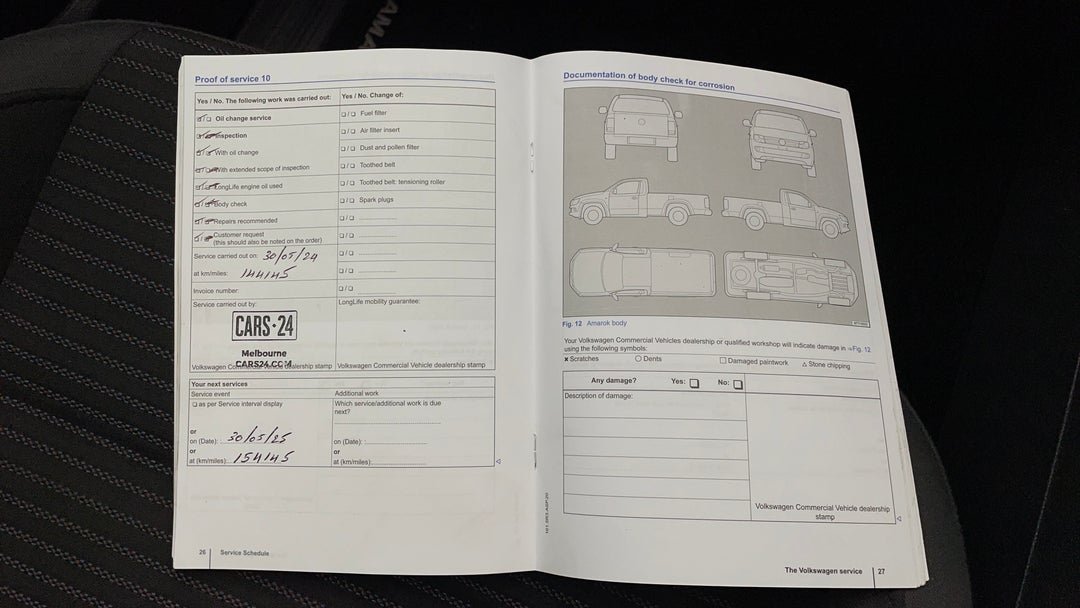 AMA
Proof of service 10
Yes / No. The following work was carried out:
Yes / No. Change of:
☐/☐ Oil change service
☐/☐ Fuel filter
☐/☐ Inspection
☐/☐ Air filter insert
☐/☐ With oil change
☐/☐ Dust and pollen filter
☐/☐ With extended scope of inspection
☐/☐ Toothed belt
☐/☐ LongLife engine oil used
☐/☐ Toothed belt: tensioning roller
☐/☐ Body check
☐/☐ Spark plugs
☐/☐ Repairs recommended
☐/☐ ....................
☐/☐ Customer request
(this should also be noted on the order)
☐/☐ ....................
Service carried out on: 30/05/24
☐/☐ ....................
at km/miles: 144145
☐/☐ ....................
Invoice number:
☐/☐
Service carried out by:
LongLife mobility guarantee:
CARS·24
Melbourne
CARS24.COM
Volkswagen Commercial Vehicle dealership stamp
Volkswagen Commercial Vehicle dealership stamp
Your next services
Service event
Additional work
☐ as per Service interval display
Which service/additional work is due
next?
or
on (Date): 30/05/25
on (Date):
or
or
at (km/miles): 154145
at (km/miles):
26 Service Schedule
Documentation of body check for corrosion
Fig. 12 Amarok body
Your Volkswagen Commercial Vehicles dealership or qualified workshop will indicate damage in ⇒Fig. 12
using the following symbols:
✖ Scratches ○ Dents ☐ Damaged paintwork △ Stone chipping
Any damage? Yes: ☐ No: ☐
Description of damage:
Volkswagen Commercial Vehicle dealership
stamp
The Volkswagen service 27